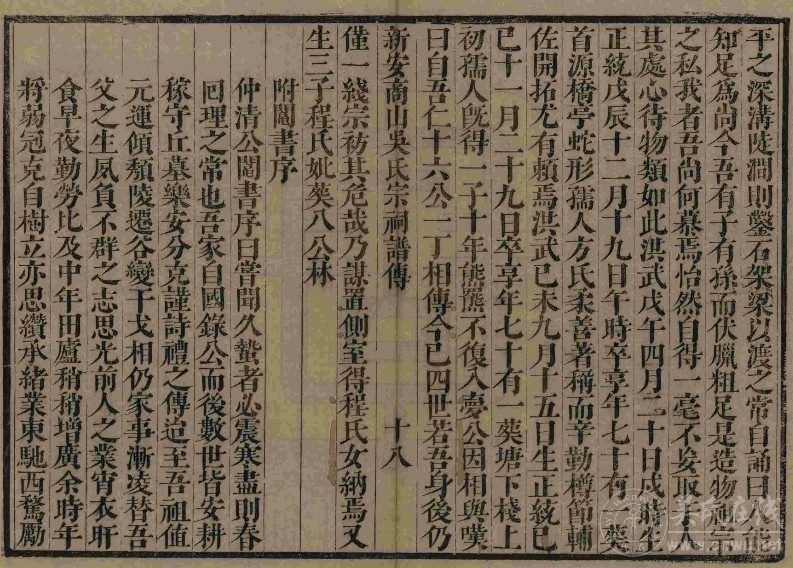 平之深溝陡澗則鑿石架梁以渡之常自誦曰人能
知足為尚今吾有子有孫而伏臘粗足是造物
之私我者吾尚何慕焉怡然自得一毫不妄取于人
其處心待物類如此洪武戊午四月二十日戌時生
正統戊辰十二月十九日午時卒享年七十有
首源橋亭蛇形孺人方氏柔善著稱而辛勤樽節輔
佐開拓尤有賴焉洪武己未九月十五日生正統己
巳十一月二十九日卒享年七十有一葬塘下棧上
初孺人既得一子十年熊羆不復入夢公因相與嘆
曰自吾仁十六公一丁相傳今已四世若吾身後仍
新安商山吳氏宗祠譜傳 十八
僅一綫宗祊其危哉乃謀置側室得程氏女納焉又
生三子程氏妣葬八公林
附鬮書序
仲清公鬮書序曰嘗聞久蟄者必震寒盡則春
回理之常也吾家自國錄公而後數世皆安耕
稼守丘墓樂安分克謹詩禮之傳迨至吾祖值
元運傾頹陵遷谷變干戈相仍家事漸凌替吾
父之生夙負不群之志思光前人之業宵衣旰
食早夜勤勞比及中年田廬稍稍增廣余時年
將弱冠克自樹立亦思纘承緒業東馳西騖勵
吴氏在线
www.cnwu.net